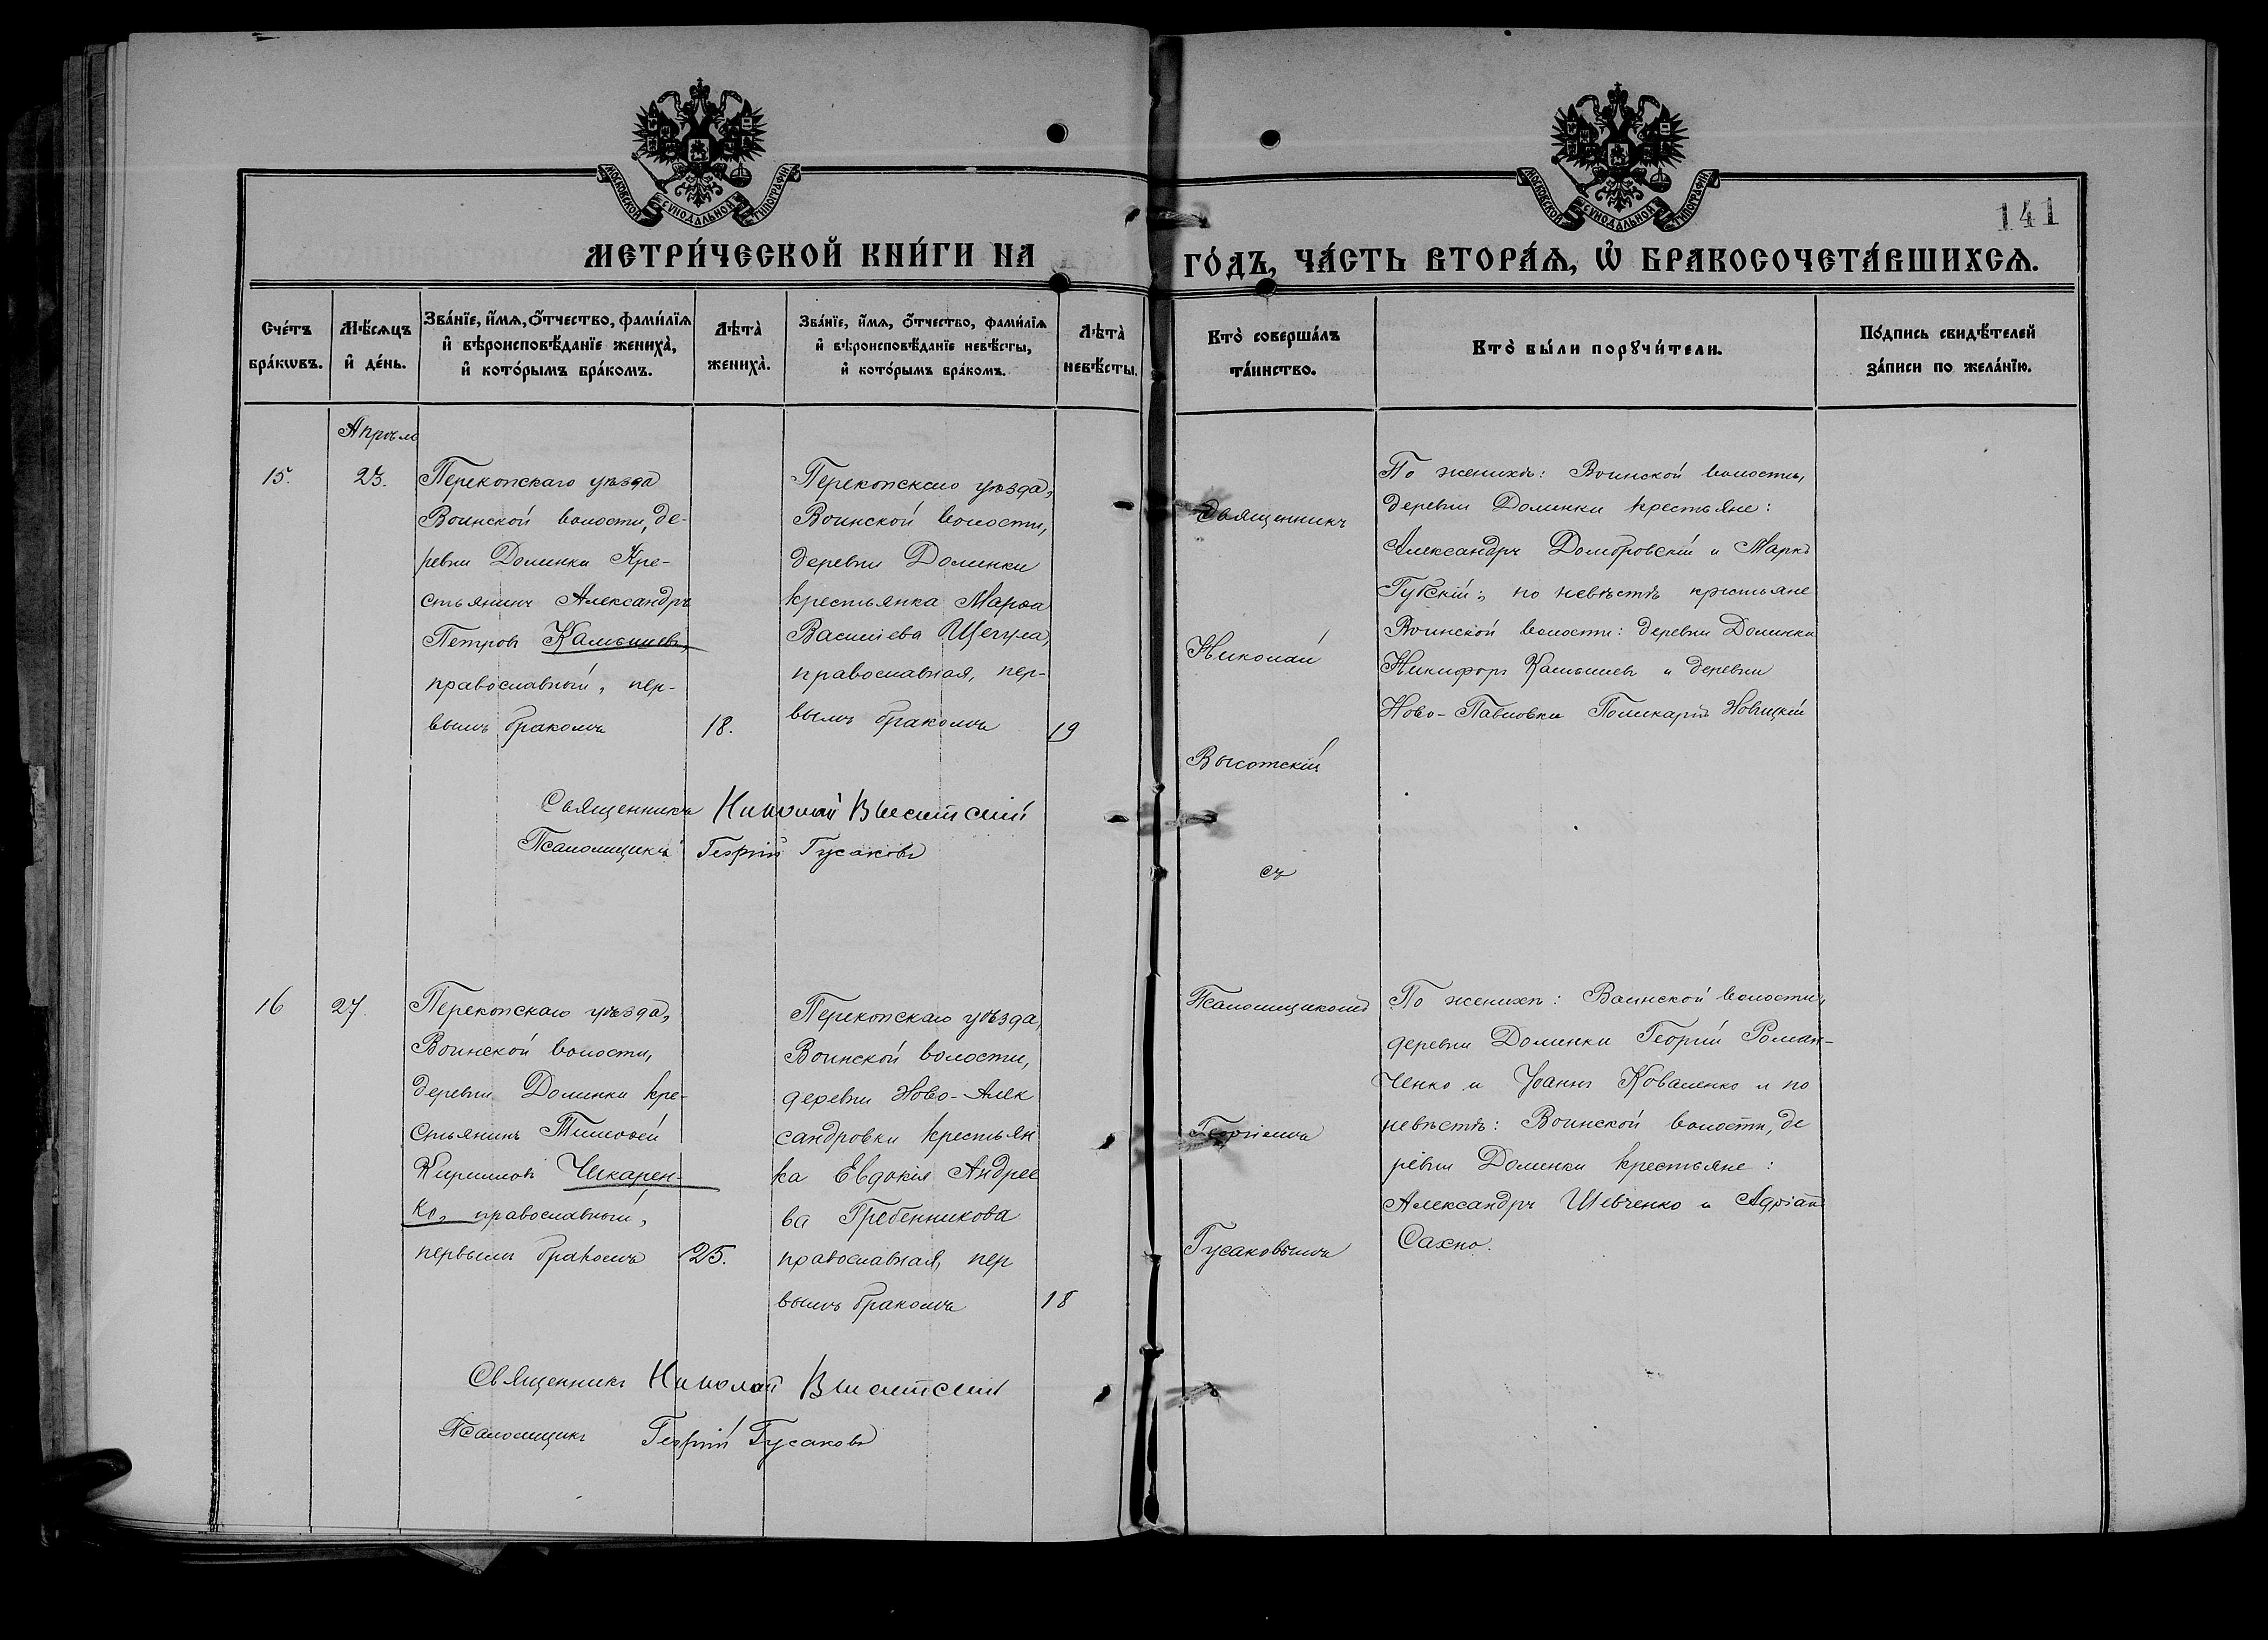 МОСКОВСКОЙ СУНОДАЛЬНОЙ ТИПОГРАФІИ
МОСКОВСКОЙ СУНОДАЛЬНОЙ ТИПОГРАФІИ
141
МЕТРИ́ЧЕСКОЙ КНИ́ГИ НА
ГО́ДЪ, ЧА́СТЬ ВТОРА́Ѧ, Ѡ҆ БРАКОСОЧЕТА́ВШИХСѦ.
Сче́тъ бра́кѡвъ.
Мѣ́сѧцъ и҆ де́нь.
Зва́нїе, и҆́мѧ, о҆́тчество, фами́лїѧ и҆ вѣроисповѣ́данїе жениха̀, и҆ кото́рымъ бра́комъ.
Лѣта̀ жениха̀.
Зва́нїе, и҆́мѧ, о҆́тчество, фами́лїѧ и҆ вѣроисповѣ́данїе невѣ́сты, и҆ кото́рымъ бра́комъ.
Лѣта̀ невѣ́сты.
Кто̀ соверша́лъ та́инство.
Кто̀ бы́ли порꙋчи́тели.
По́дпись свидѣ́телей за́писи по жела́нїю.
Апрѣль
15.
23.
Перекопскаго уѣзда
Воинской волости, де-
ревни Долинки Кре-
стьянинъ Александръ
Петровъ Камышевъ,
православный, пер-
вымъ бракомъ
18.
Перекопскаго уѣзда,
Воинской волости,
деревни Долинки
крестьянка Марѳа
Васильева Щегула,
православная, пер-
вымъ бракомъ
19
Священникъ
Николай
Высотскій
съ
По женихѣ: Воинской волости,
деревни Долинки крестьяне:
Александръ Домбровскій и Маркъ
Губскій; по невѣстѣ крестьяне
Воинской волости: деревни Долинки
Никифоръ Камышевъ и деревни
Ново-Павловки Поликарпъ Новицкій
Священникъ Николай Высотскій
Псаломщикъ Георгій Гусаковъ
16
27.
Перекопскаго уѣзда,
Воинской волости,
деревни Долинки кре-
стьянинъ Тимоѳей
Кириловъ Чекарен-
ко, православный,
первымъ бракомъ
25.
Перекопскаго уѣзда,
Воинской волости,
деревни Ново-Алек
сандровки крестьян
ка Евдокія Андрее
ва Гребенникова
православная, пер
вымъ бракомъ
18
Псаломщикомъ
Георгіемъ
Гусаковымъ
По женихѣ: Воинской волости,
деревни Долинки Георгій Роман-
ченко и Іоаннъ Коваленко и по
невѣстѣ: Воинской волости, де
ревни Долинки крестьяне:
Александръ Шевченко и Адріанъ
Сахно.
Священникъ Николай Высотскій
Псаломщикъ Георгій Гусаковъ